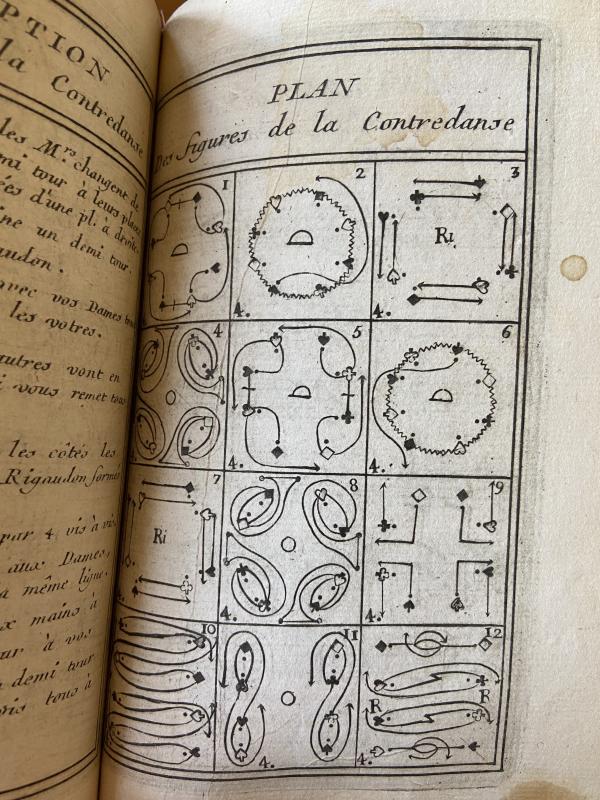 PTION
la Contredanse
les M.rs changent de
mi tour à leurs places
ées d'une pl. a droite.
ine un demi tour.
audon.
avec vos Dames
les votres.
autres vont en
i vous remet tous
les côtés les
Rigaudon formés
par 4. vis à vis
aux Dames,
a même ligne.
ux mains à
ur à vos
demi tour
ris tous à
PLAN
Des figures de la Contredanse
1 2 3
Ri
4. 4.
4 5 6
4. 4.
7 8 19
Ri
4. 4.
10 11 12
R
R
4. 4.